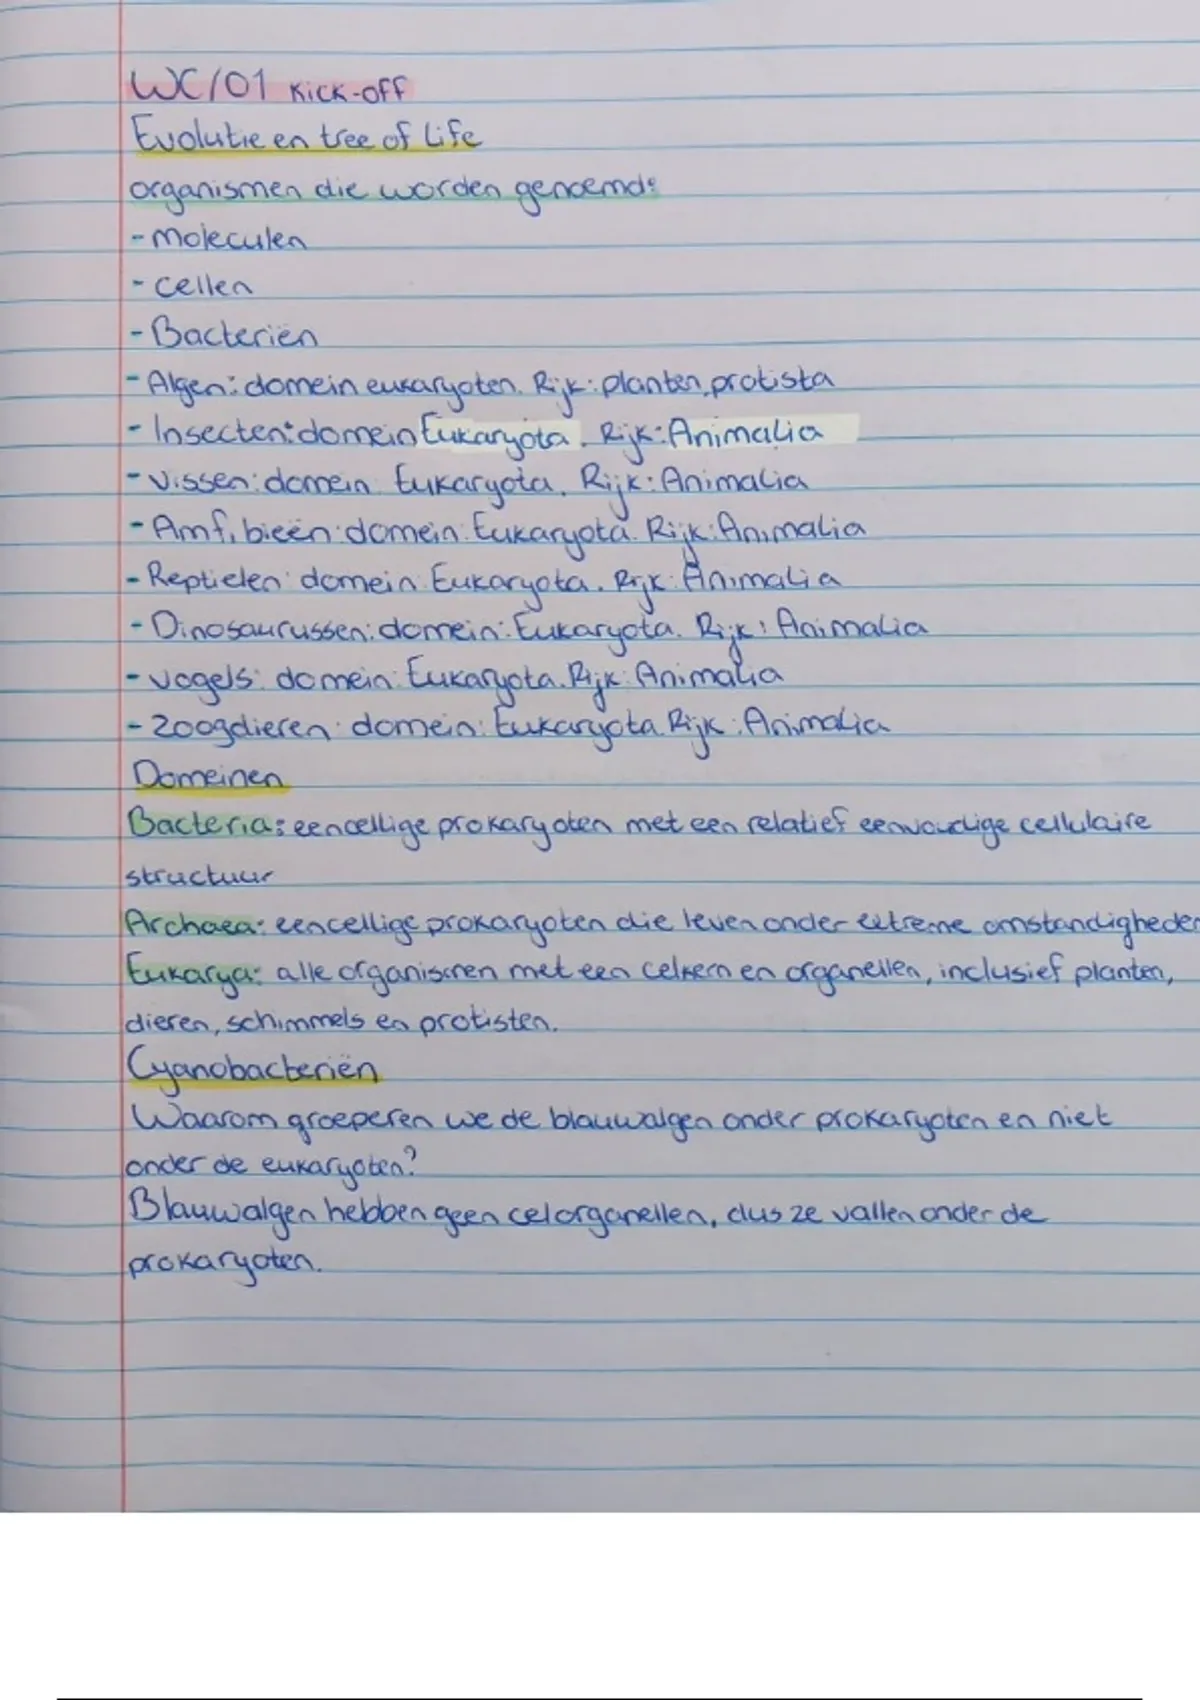 WC/01 Kick-off
Evolutie en tree of Life
organismen die worden genoemd:
- Moleculen
- cellen
- Bacteriën
- Algen: domein eukaryoten. Rijk: planten, protista
- Insecten: domein Eukaryota. Rijk: Animalia
- vissen: domein: Eukaryota. Rijk: Animalia
- Amfibieën: domein: Eukaryota. Rijk: Animalia
- Reptielen: domein: Eukaryota. Rijk: Animalia
- Dinosaurussen: domein: Eukaryota. Rijk: Animalia
- vogels: domein: Eukaryota. Rijk: Animalia
- Zoogdieren: domein: Eukaryota Rijk: Animalia
Domeinen
Bacteria: eencellige prokaryoten met een relatief eenvoudige cellulaire
structuur
Archaea: eencellige prokaryoten die leven onder extreme omstandigheden
Eukarya: alle organismen met een celkern en organellen, inclusief planten,
dieren, schimmels en protisten.
Cyanobacteriën
Waarom groeperen we de blauwalgen onder prokaryoten en niet
onder de eukaryoten?
Blauwalgen hebben geen celorganellen, dus ze vallen onder de
prokaryoten.